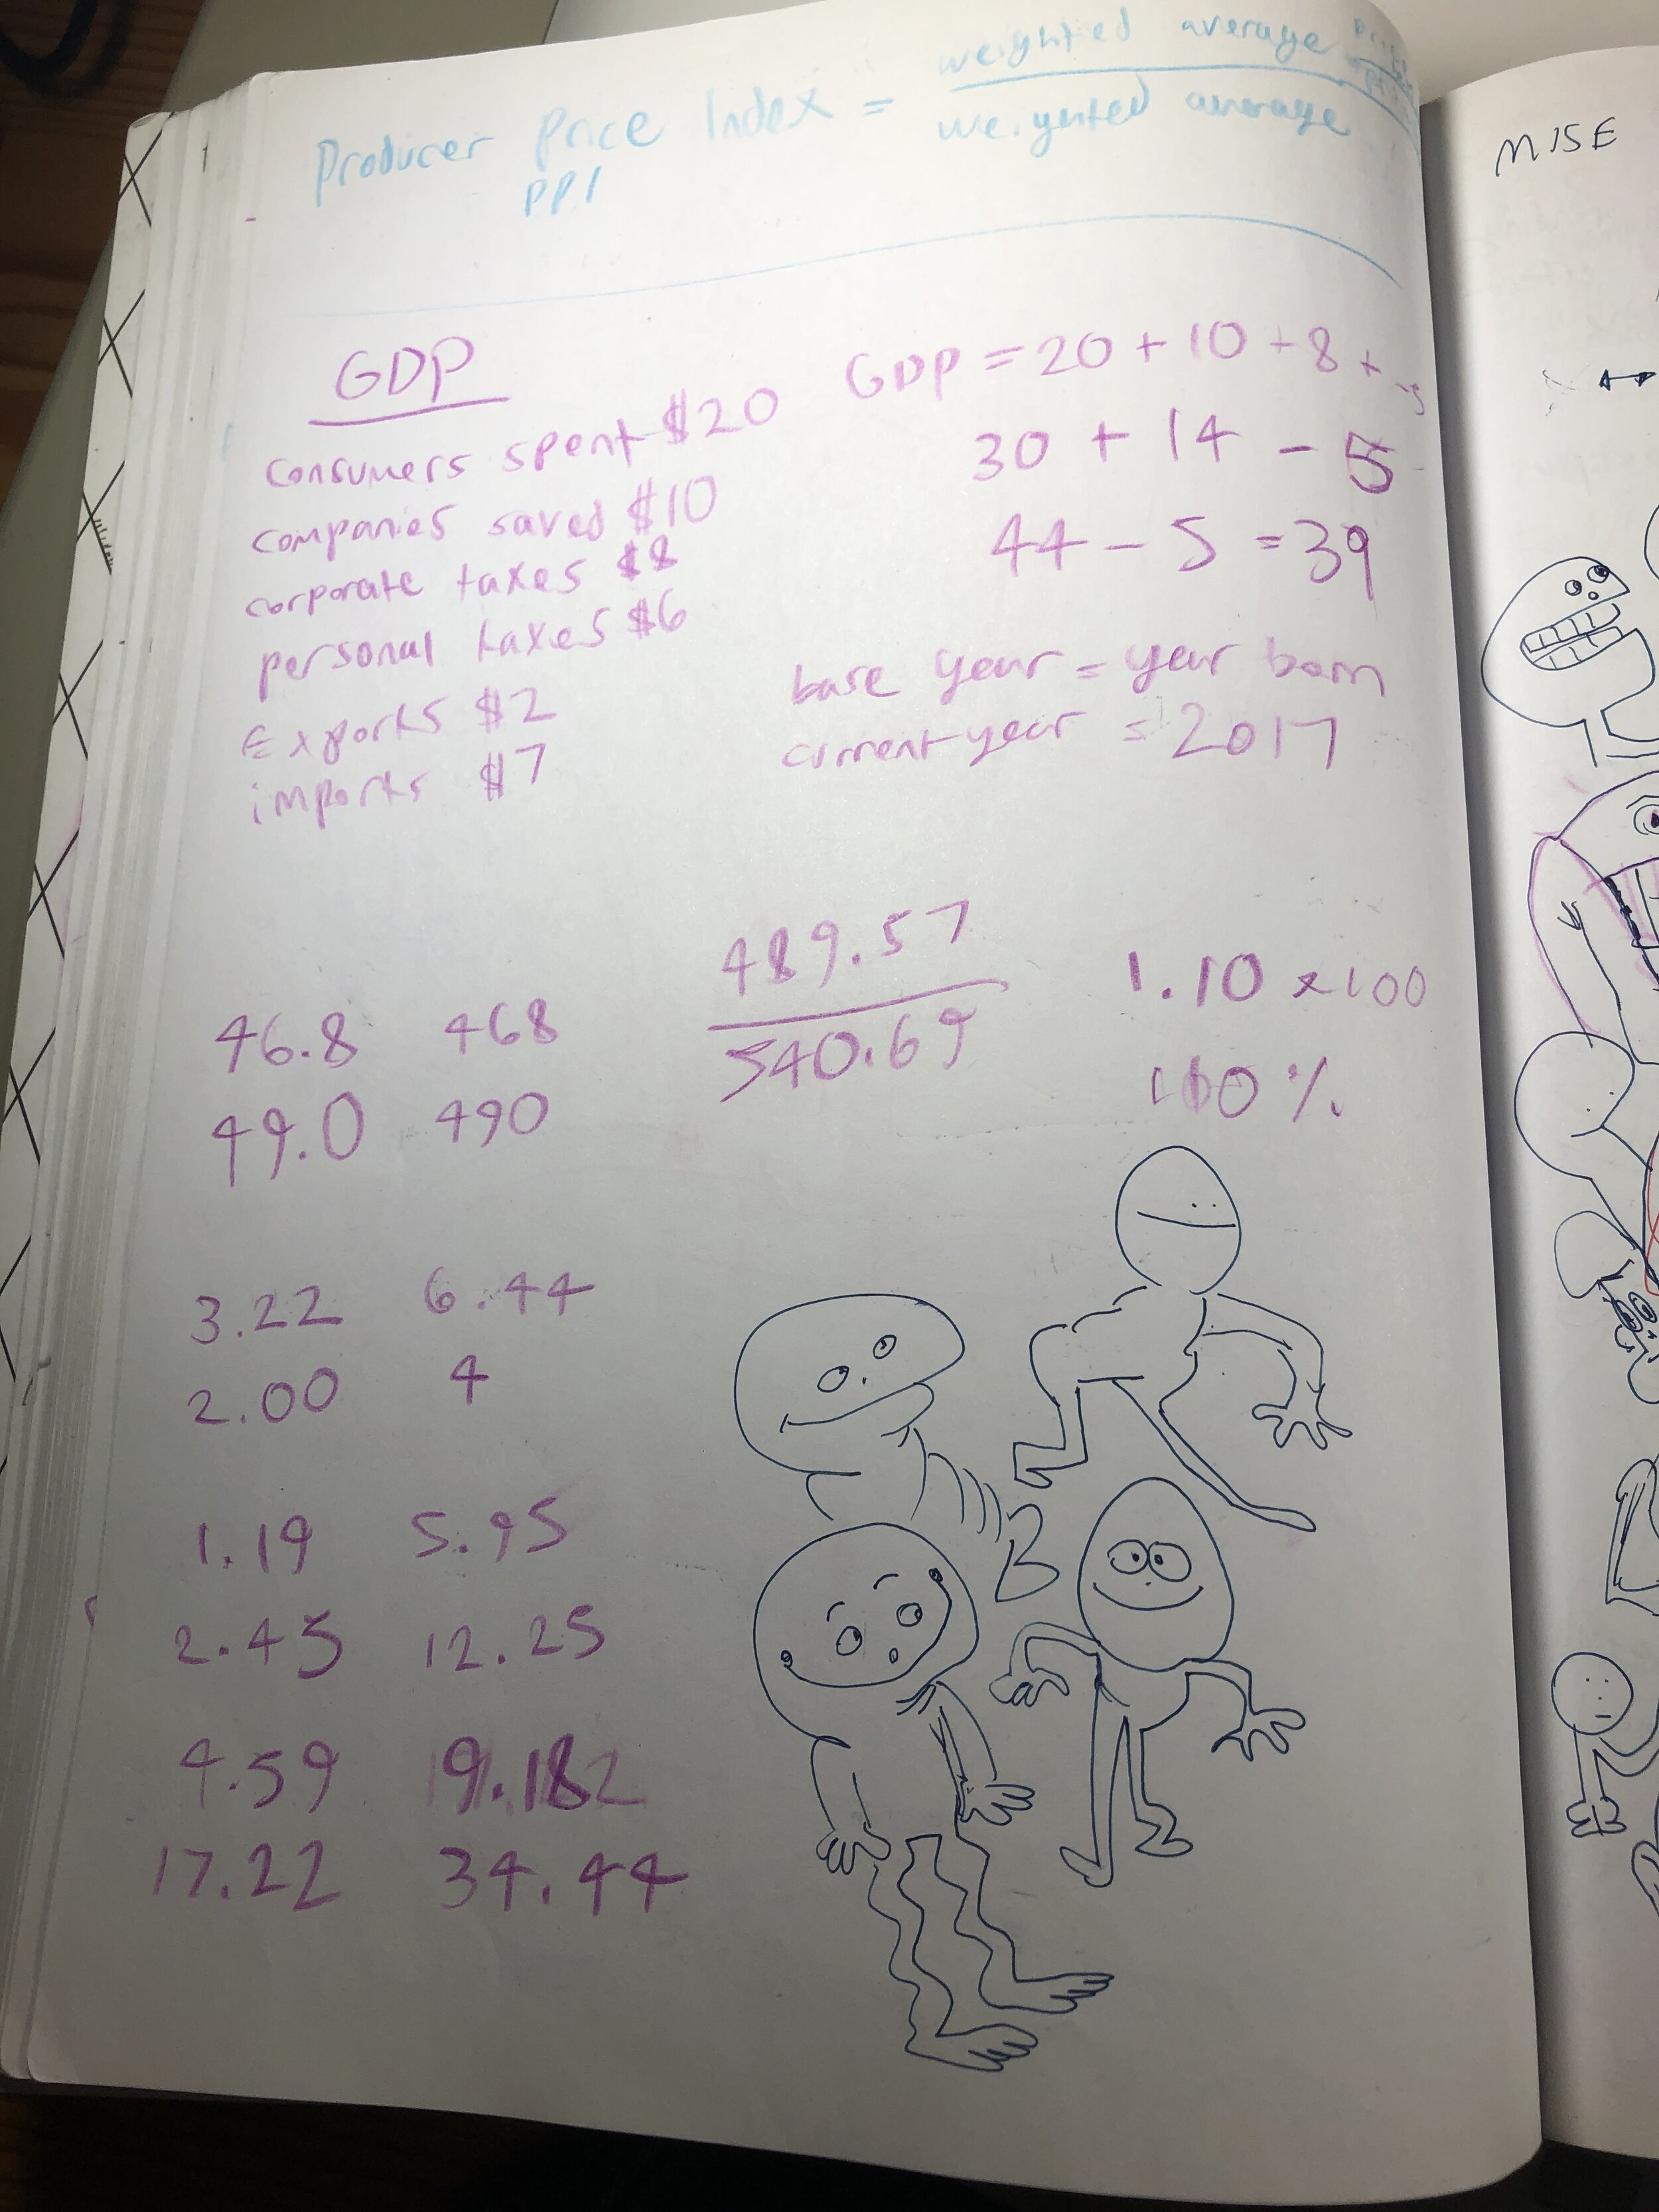 weighted average
Producer Price Index = weighted average
PPI
GDP
consumers spent $20
companies saved $10
corporate taxes $8
personal taxes $6
Exports $2
imports $7
GDP = 20 + 10 + 8 +
30 + 14 - 5
44 - 5 = 39
base year = year born
current year = 2017
489.57
540.69
1.10 x 100
110%
46.8 468
49.0 490
3.22 6.44
2.00 4
1.19 5.95
2.45 12.25
9.59 19.182
17.22 34.44
MISE